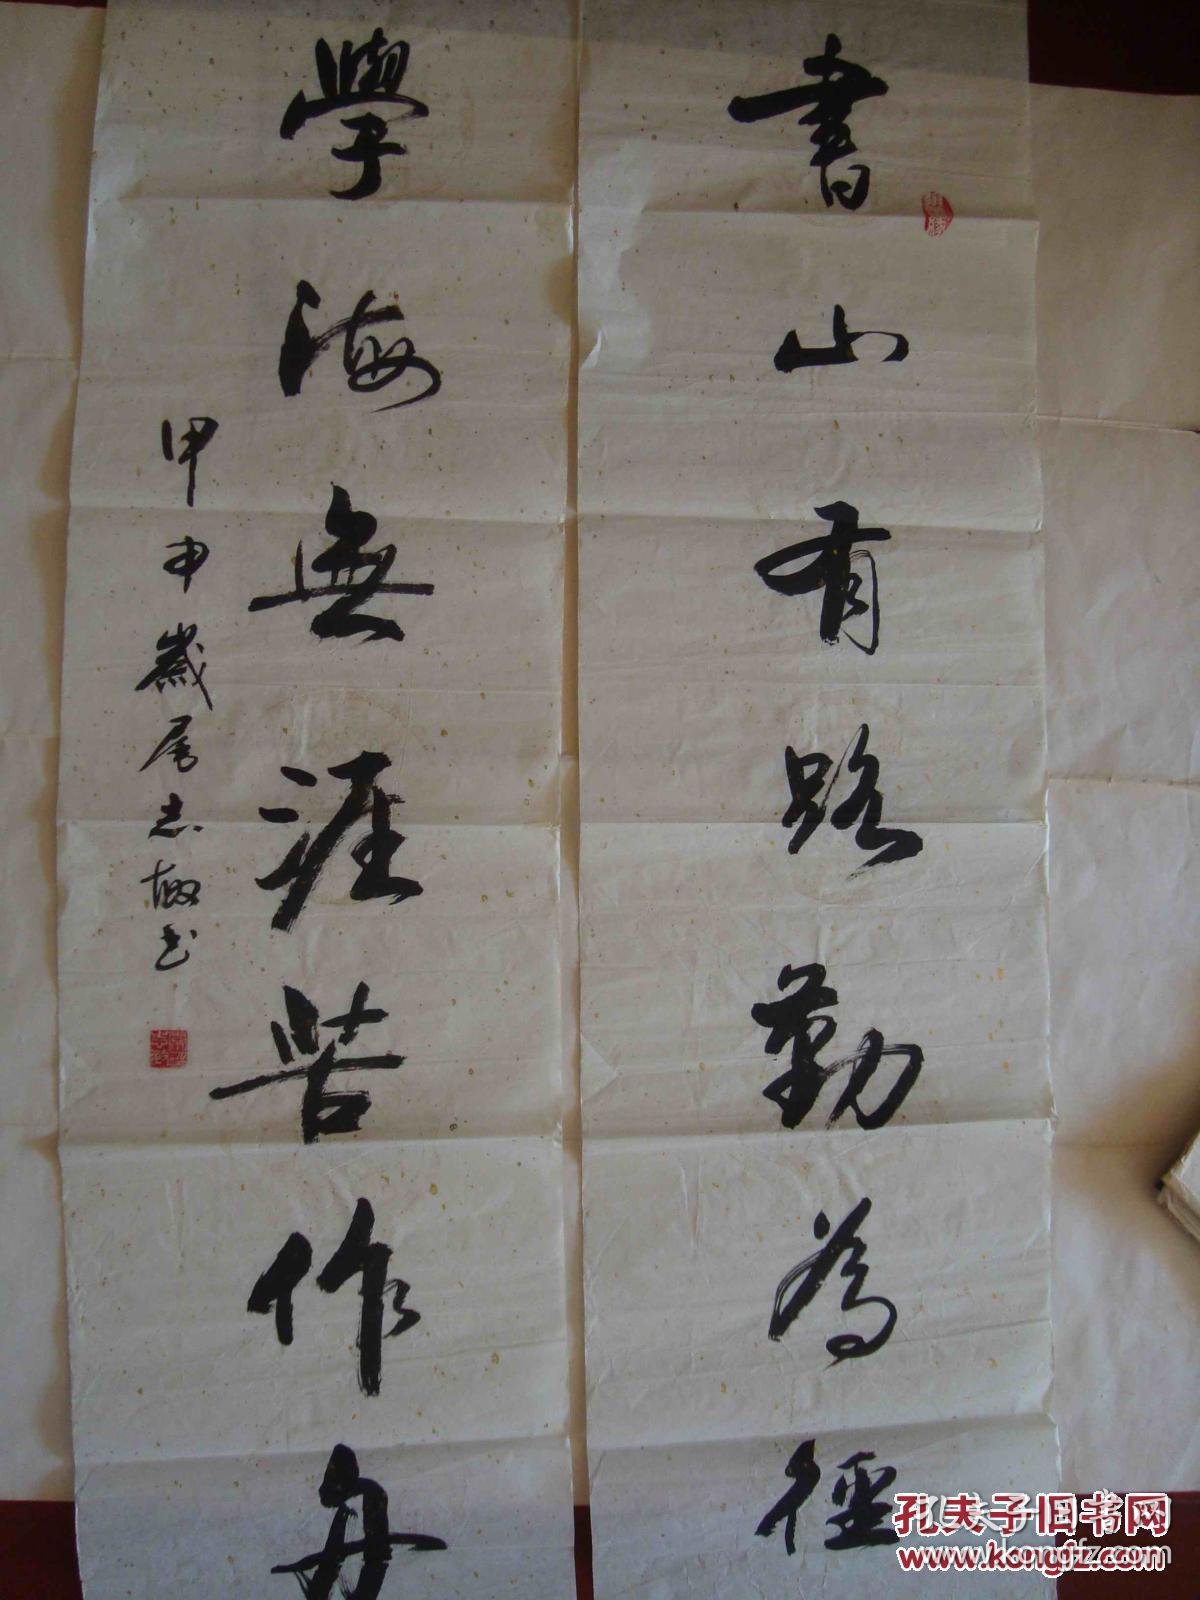 書山有路勤為徑
學海無涯苦作舟
甲申歲尾志敏书
孔夫子旧书网
www.kongfz.com